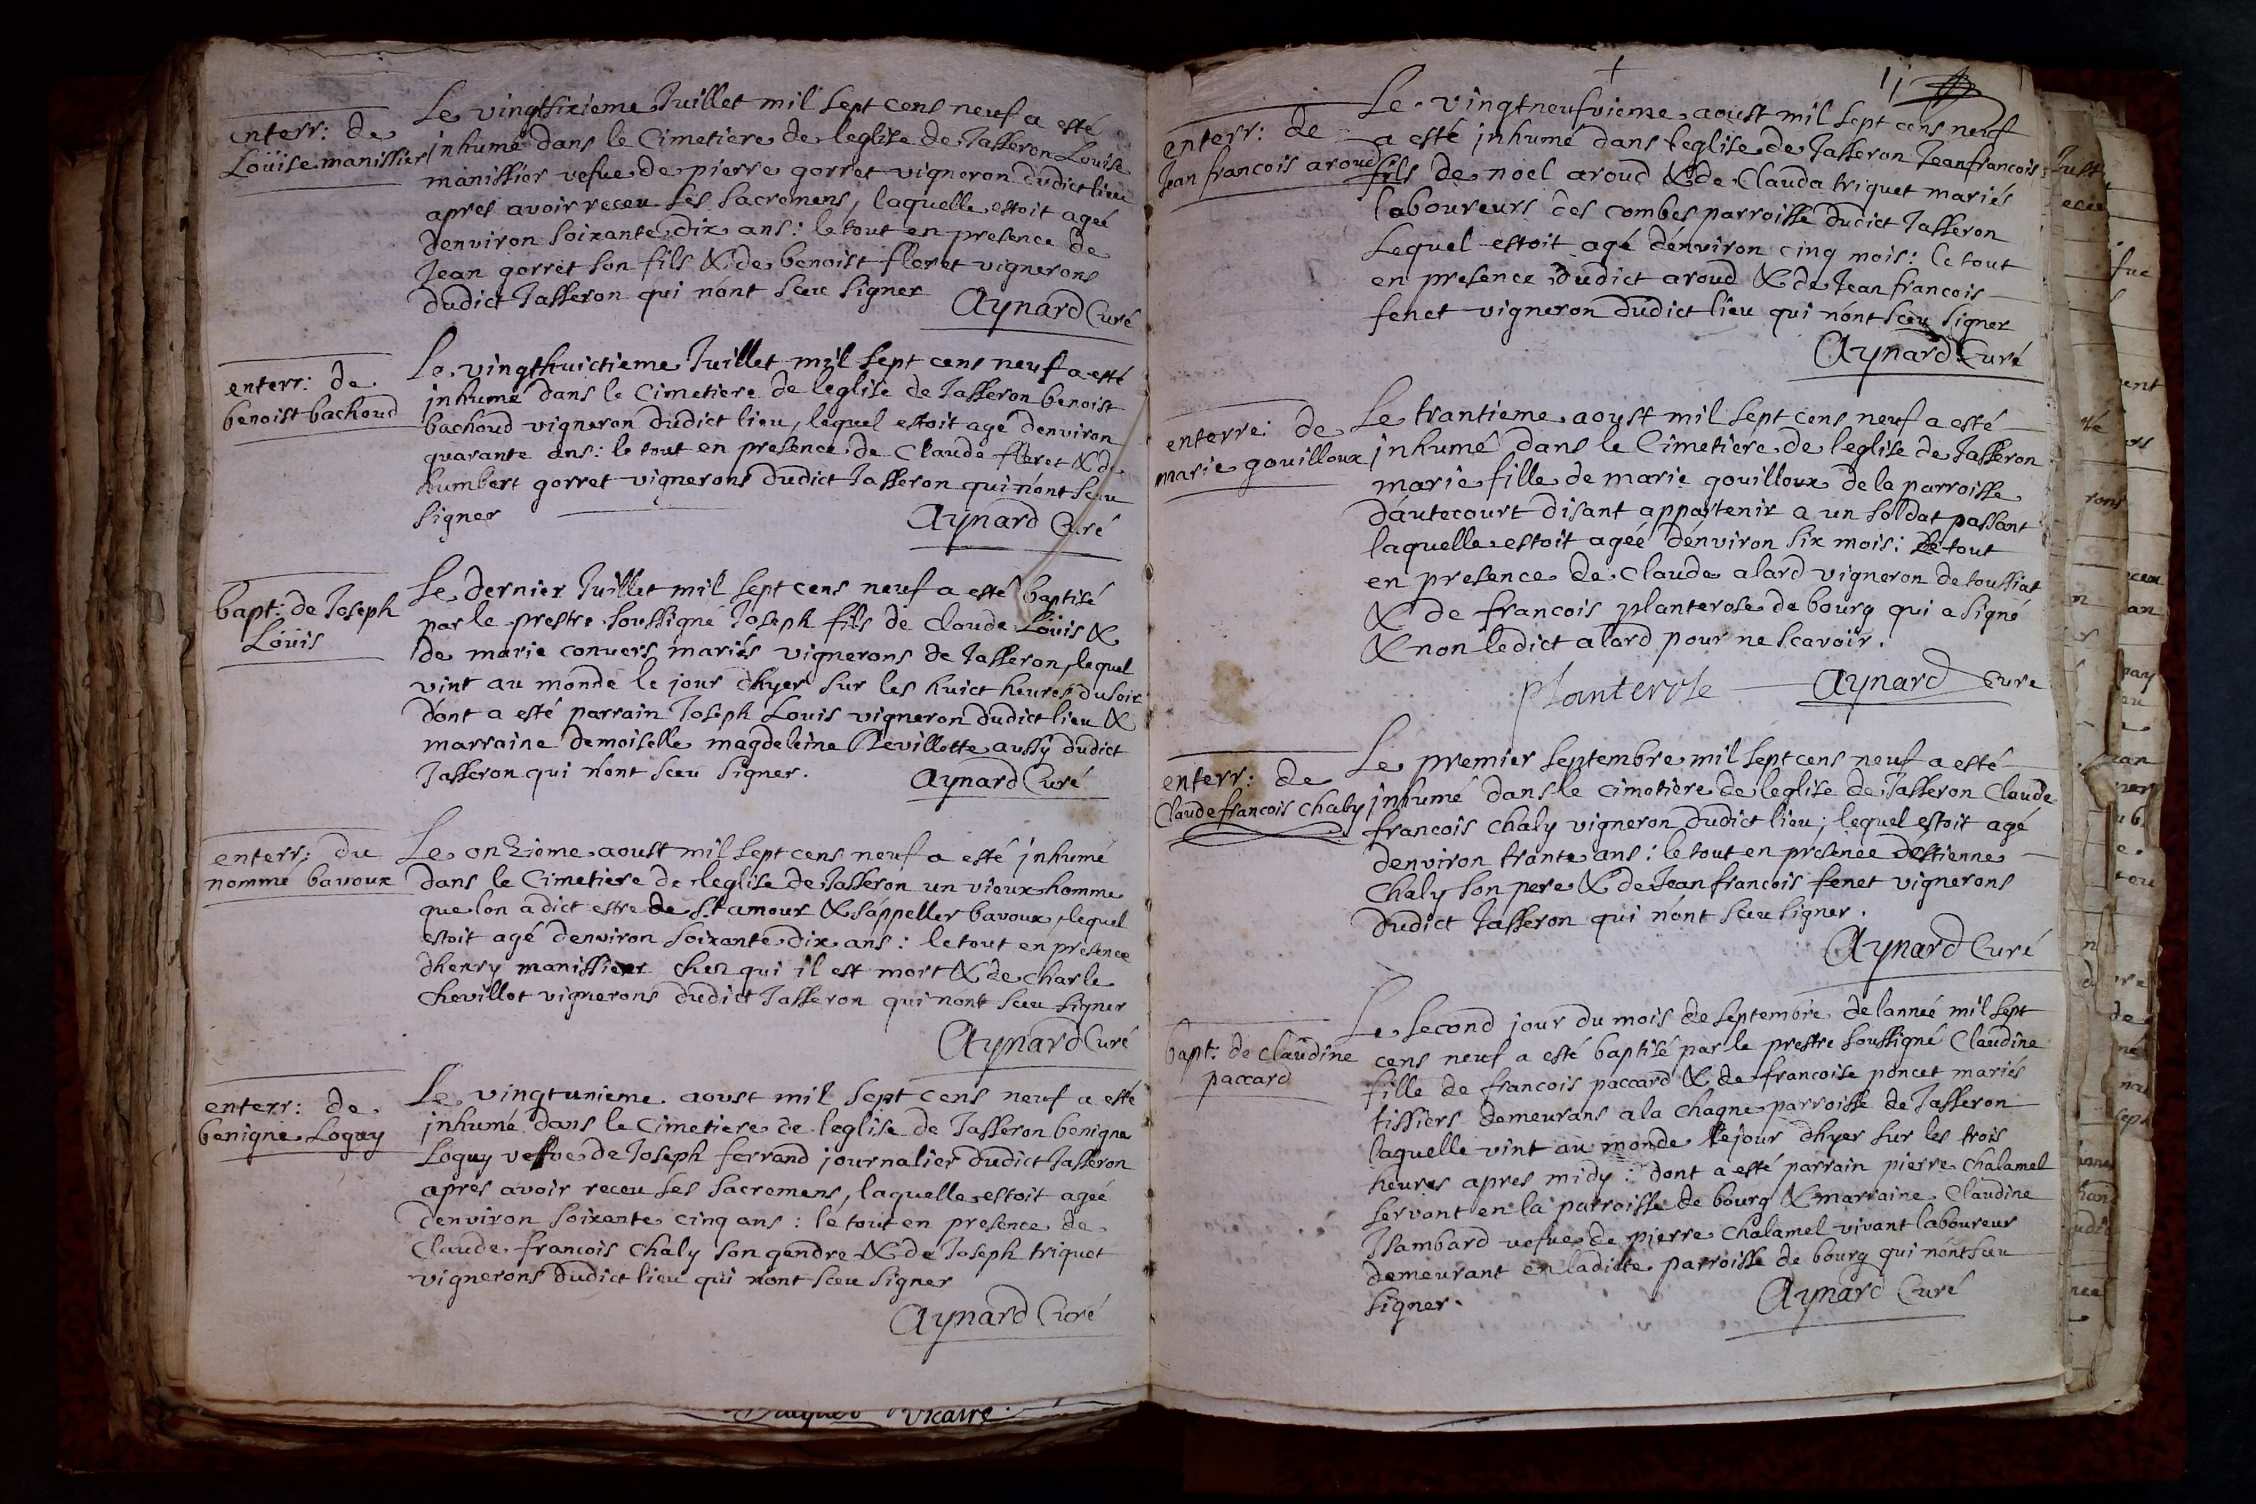 enterr: de
Loüise manissier
Le vingtsixieme Juillet mil sept cens neuf a esté
inhumé dans le Cimetiere de leglise de Jasseron Louise
manissier vefve de pierre gorret vigneron dudict lieu
apres avoir receu les sacremens, laquelle estoit ageé
denviron soixante dix ans: le tout en presence de
Jean gorret son fils & de benoist floret vignerons
dudict Jasseron qui nont sceu signer
Aynard Curé
enterr: de
benoist bachoud
Le vingthuictieme Juillet mil sept cens neuf a esté
inhumé dans le Cimetiere de leglise de Jasseron benoist
bachoud vigneron dudict lieu, lequel estoit agé denviron
quarante ans: le tout en presence de Claude floret & de
humbert gorret vignerons dudict Jasseron qui nont sceu
signer
Aynard Curé
bapt: de Joseph
Loüis
Le dernier Juillet mil sept cens neuf a esté baptisé
par le prestre soussigné Joseph fils de claude Loüis &
de marie convers mariés vignerons de Jasseron, lequel
vint au monde le jour dhyer sur les huict heures du soir
dont a esté parrain Joseph Louis vigneron dudict lieu &
marraine demoiselle magdeleine Revillotte aussy dudict
Jasseron qui nont sceu signer.
Aynard Curé
enterr: du
nommé bavoux
Le onzieme aoust mil sept cens neuf a esté inhumé
dans le Cimetiere de leglise de Jasseron un vieux homme
que lon a dict estre de st amour & sappeller bavoux, lequel
estoit agé denviron soixante dix ans: le tout en presence
dhenry manissier chez qui il est mort & de charle
chevillot vignerons dudict Jasseron qui nont sceu signer
Aynard Curé
enterr: de
benigne Loguy
Le vingtunieme aoust mil sept cens neuf a esté
inhumé dans le Cimetiere de leglise de Jasseron benigne
Loguy vefve de Joseph ferrand journalier dudict Jasseron
aprés avoir receu les sacremens, laquelle estoit ageé
denviron soixante cinq ans: le tout en presence de
Claude francois chaly son gendre & de Joseph triquet
vignerons dudict lieu qui nont sceu signer
Aynard Curé
vicaire
11
enterr: de
Jean francois aroud
Le vingtneufvieme aoust mil sept cens neuf
a esté inhumé dans leglise de Jasseron Jeanfrancois
fils de noel aroud & de Clauda triquet mariés
laboureurs des combes parroisse dudict Jasseron
Lequel estoit agé dénviron cinq mois: le tout
en presence dudict aroud & de Jean francois
fenet vigneron dudict lieu qui nont sceu signer
Aynard Curé
enterre: de
marie gouilloux
Le trantieme aoust mil sept cens neuf a esté
inhumé dans le Cimetiere de leglise de Jasseron
marie fille de marie gouilloux de la parroisse
dáutecourt disant appartenir a un soldat passant
laquelle estoit ageé dénviron six mois: Le tout
en presence de claude alard vigneron de toussiat
& de francois planterose de bourg qui a signé
& non ledict alard pour ne scavoir.
planterose
Aynard Cure
enterr: de
Claude francois Chaly
Le premier septembre mil sept cens neuf a esté
inhumé dans le cimetiere de leglise de Jasseron Claude
francois chaly vigneron dudict lieu; lequel estoit agé
denviron trante ans: le tout en presence destienne
chaly son pere & de Jean francois fenet vignerons
dudict Jasseron qui nont sceu signer.
Aynard Curé
bapt: de claudine
paccard
Le second jour du mois de septembre de lanneé mil sept
cens neuf a esté baptisé par le prestre soussigné Claudine
fille de francois paccard & de francoise poncet mariés
tissiers demeurans a la chagne parroisse de Jasseron
laquelle vint au monde le jour dhyer sur les trois
heures apres midy: dont a esté parrain pierre chalamel
servant en la parroisse de bourg & marraine Claudine
Isambard vefve de pierre chalamel vivant laboureur
demeurant en ladicte parroisse de bourg qui nont sceu
signer.
Aynard Curé